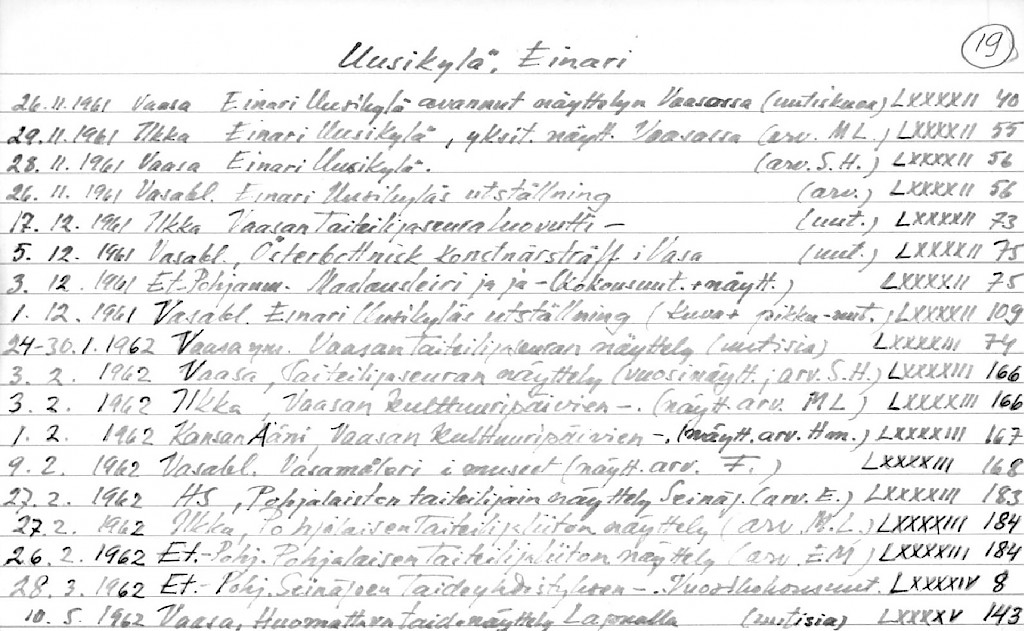 19
Uusikylä, Einari
26.11.1961 Vaasa Einari Uusikylä avannut näyttelyn Vaasassa (uutiskuva) LXXXXII 40
29.11.1961 Ilkka Einari Uusikylä, yksit. näytt. Vaasassa (arv. M L.) LXXXXII 55
28.11.1961 Vaasa Einari Uusikylä. (arv. S.H.) LXXXXII 56
26.11.1961 Vasabl. Einari Uusikyläs utställning (arv.) LXXXXII 56
17.12.1961 Ilkka Vaasan Taiteilijaseura luovutti – (uut.) LXXXXII 73
5.12.1961 Vasabl., Österbottnisk konstnärsträff i Vasa (uut.) LXXXXII 75
3.12.1961 Et.Pohjanm. Maalausleiri ja ja – (Kokousuut. + näytt.) LXXXXII 75
1.12.1961 Vasabl. Einari Uusikyläs utställning (kuva + pikku-uut.) LXXXXII 109
24-30.1.1962 Vaasa ym. Vaasan Taiteilijaseuran näyttely (uutisia) LXXXXIII 74
3.2.1962 Vaasa, Taiteilijaseuran näyttely (vuosinäytt.; arv. S.H.) LXXXXIII 166
3.2.1962 Ilkka, Vaasan kulttuuripäivien –. (näytt. arv. M L) LXXXXIII 166
1.2.1962 Kansan Ääni, Vaasan kulttuuripäivien –. (näytt. arv. Hm.) LXXXXIII 167
9.2.1962 Vasabl. Vasamåleri i museet (näytt. arv. F.) LXXXXIII 168
27.2.1962 HS, Pohjalaisten taiteilijain näyttely Seinäj. (arv. E.) LXXXXIII 183
27.2.1962 Ilkka, Pohjalaisen Taiteilijaliiton näyttely (arv. M.L.) LXXXXIII 184
26.2.1962 Et.-Pohj. Pohjalaisen Taiteilijaliiton näyttely (arv. E M) LXXXXIII 184
28.3.1962 Et.-Pohj. Seinäjoen Taideyhdistyksen –. Vuosikokousuut. LXXXXIV 8
10.5.1962 Vaasa, Huomattava taidenäyttely Lapualla (uutisia) LXXXXV 143